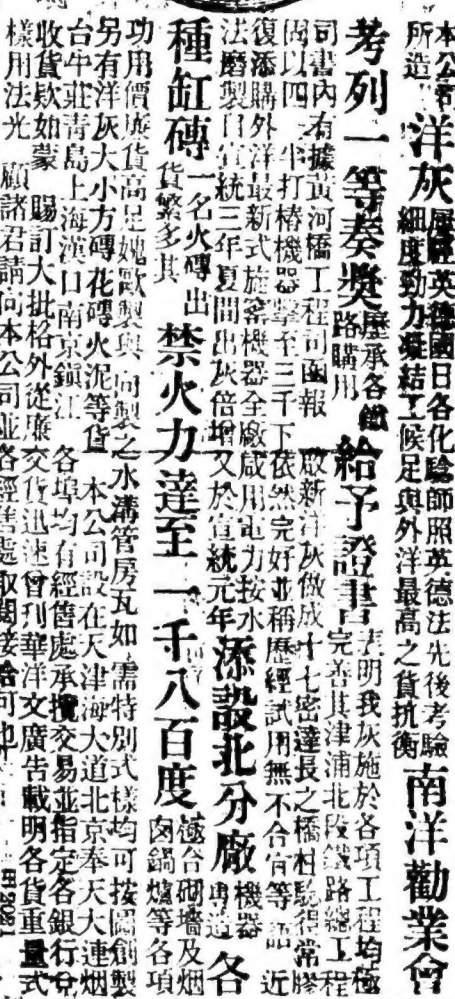 本公司
所造
洋灰
屢經英德國日各化驗師照英德法先後考驗
細度勁力凝結工候足與外洋最高之貨抗衡
南洋勸業會
考列一等奏獎
歷承各鐵
路購用
給予證書
表明我灰施於各項工程均極
完善其津浦北段鐵路總工程
司書內有據黃河橋工程司函報 啟新洋灰做成十七密達長之橋柱驗得常膠
固以四 半打樁機器擊至三千下依然完好並稱歷經試用無不合宜等語 近
復添購外洋最新式旋窰機器全廠咸用電力按水
法磨製自宣統三年夏間出灰倍增又於宣統元年
添設北分廠
機器
專造
各
種缸磚
一名火磚出
貨繁多其
禁火力達至一千八百度
極合砌墻及烟
囪鍋爐等各項
功用價 貨高足媲歐製與 同製之水溝管房瓦如需特別式樣均可按圖創製
另有洋灰大小方磚花磚火泥等貨 本公司設在天津海大道北京奉天大連烟
台牛莊青島上海漢口南京鎮江 各埠均有經售處承攬交易並指定各銀行兌
收貨欵如蒙 賜訂大批格外從廉交貨迅速曾刊華洋文廣告載明各貨重量式
樣用法光 顧諸君請向本公司並各經售處取閱接洽可也